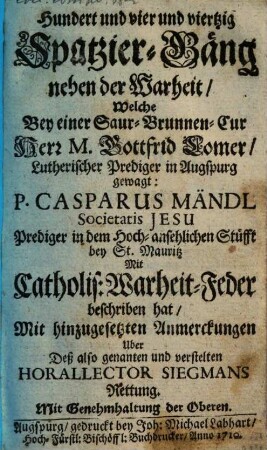 Hundert und vier und viertzig
Spatzier-Gäng
neben der Warheit/
Welche
Bey einer Saur-Brunnen-Cur
Herr M. Gottfrid Lomer/
Lutherischer Prediger in Augspurg
gewagt:
P. CASPARUS MÄNDL
Societatis JESU
Prediger in dem Hoch-ansehlichen Stüfft
bey St. Mauritz
Mit
Catholis: Warheit-Feder
beschriben hat/
Mit hinzugesetzten Anmerckungen
Uber
Deß also genanten und verstelten
HORALLECTOR SIEGMANS
Rettung.
Mit Genehmhaltung der Oberen.
Augspurg/ gedruckt bey Joh: Michael Labhart/
Hoch-Fürstl: Bischöffl: Buchdrucker/ Anno 1710.